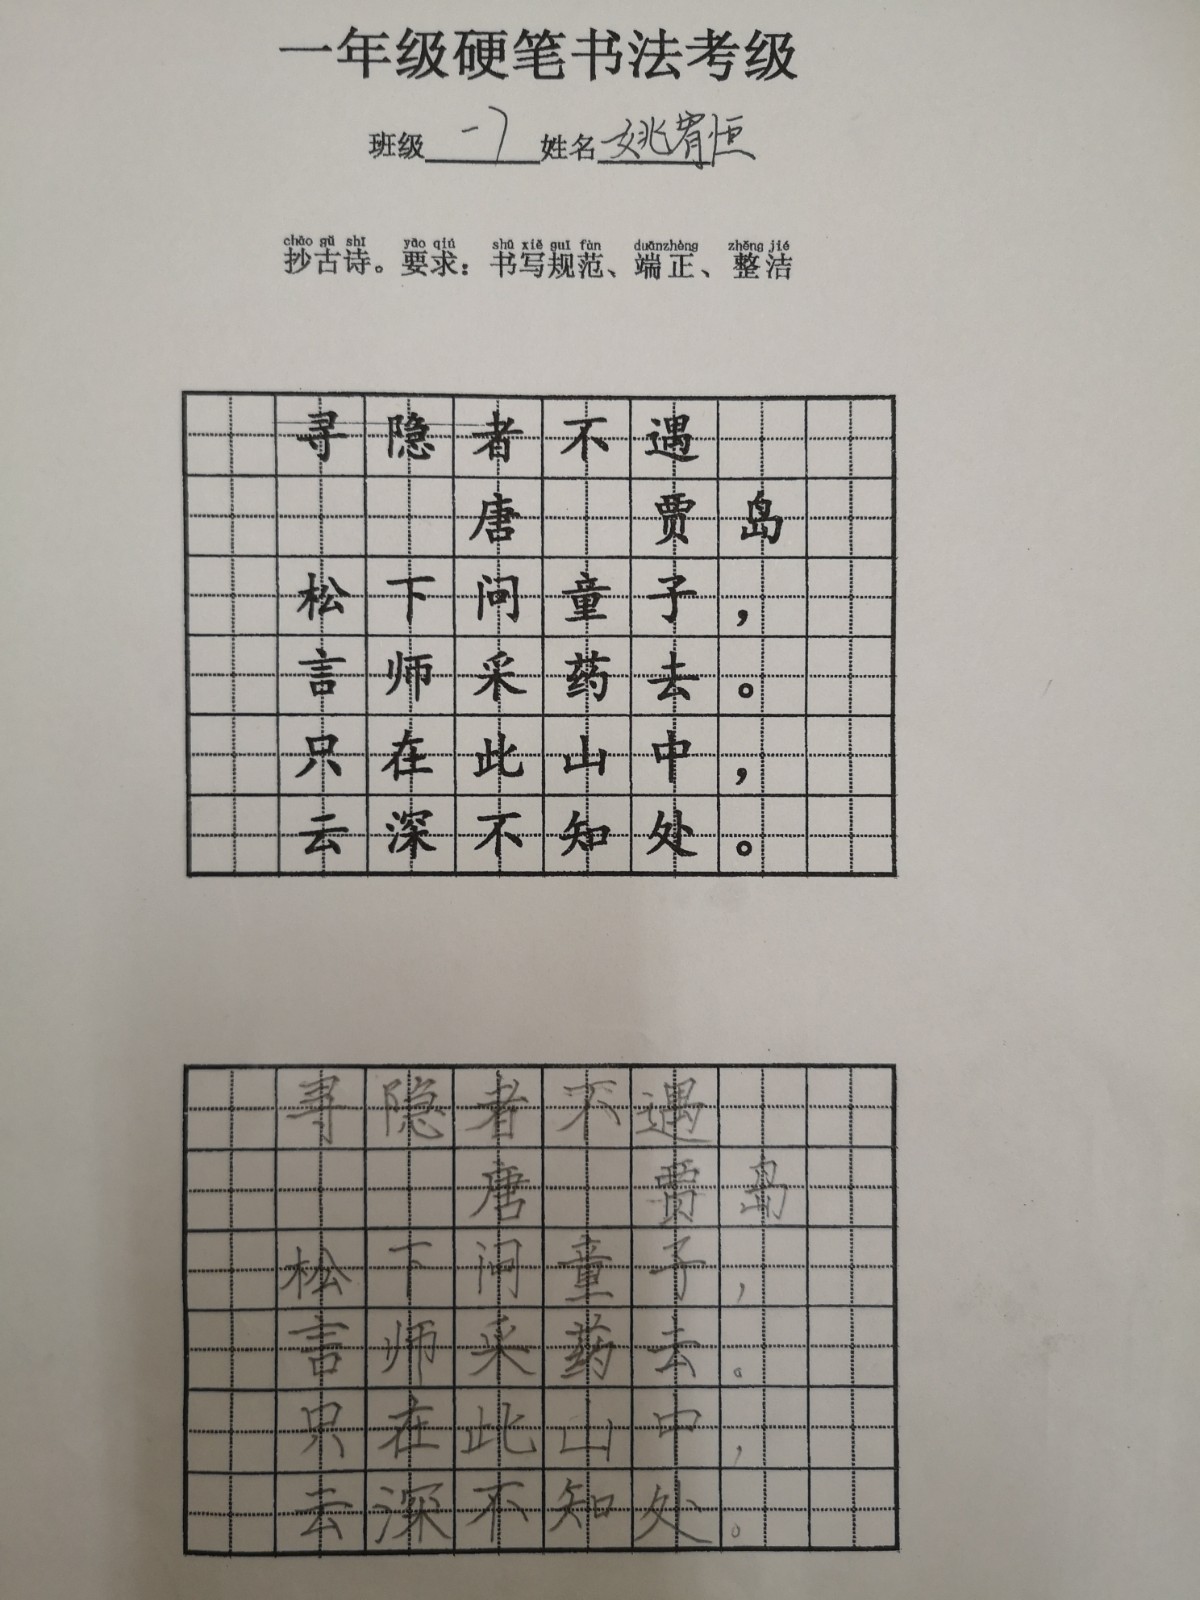 一年级硬笔书法考级
班级 一7 姓名 姚宥恒
chāo gǔ shī yāo qiú shū xiě guī fàn duānzhèng zhěng jié
抄古诗。要求：书写规范、端正、整洁
寻隐者不遇
唐 贾岛
松下问童子，
言师采药去。
只在此山中，
云深不知处。
寻隐者不遇
唐 贾岛
松下问童子，
言师采药去。
只在此山中，
云深不知处。